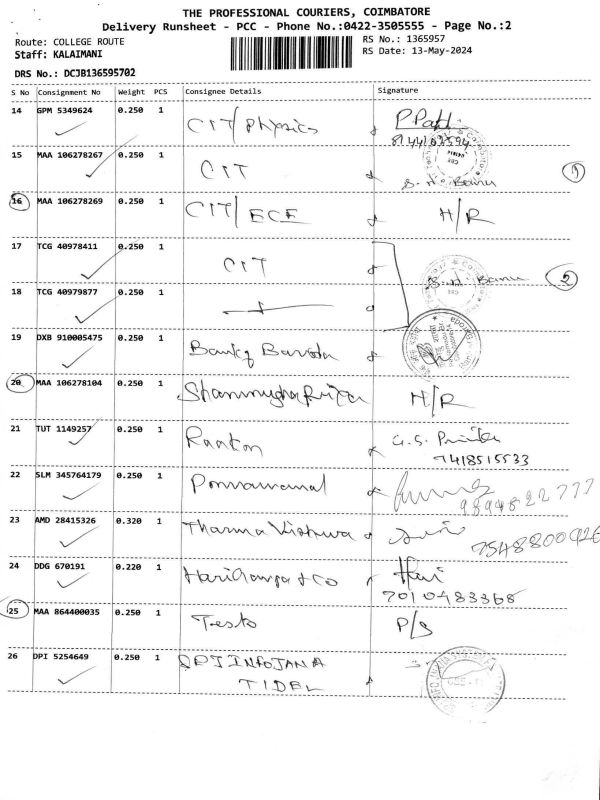 THE PROFESSIONAL COURIERS, COIMBATORE
Delivery Runsheet - PCC - Phone No.:0422-3505555 - Page No.:2
Route: COLLEGE ROUTE
RS No.: 1365957
Staff: KALAIMANI
RS Date: 13-May-2024
DRS No.: DCJB136595702
S No Consignment No Weight PCS Consignee Details Signature
14 GPM 5349624 0.250 1 CIT/Physics
15 MAA 106278267 0.250 1 CIT
1
16 MAA 106278269 0.250 1 CIT/ECE H/R
17 TCG 40978411 0.250 1 CIT
2
18 TCG 40979877 0.250 1
19 DXB 910005475 0.250 1 Bank of Baroda
20 MAA 106278104 0.250 1 H/R
21 TUT 1149257 0.250 1
7418515533
22 SLM 345764179 0.250 1
23 AMD 28415326 0.320 1 Tharma Vishwa
7548800926
24 DDG 670191 0.220 1 Hari
7010483368
25 MAA 864400035 0.250 1 P/S
26 DPI 5254649 0.250 1 INFOJANA
TIDEL